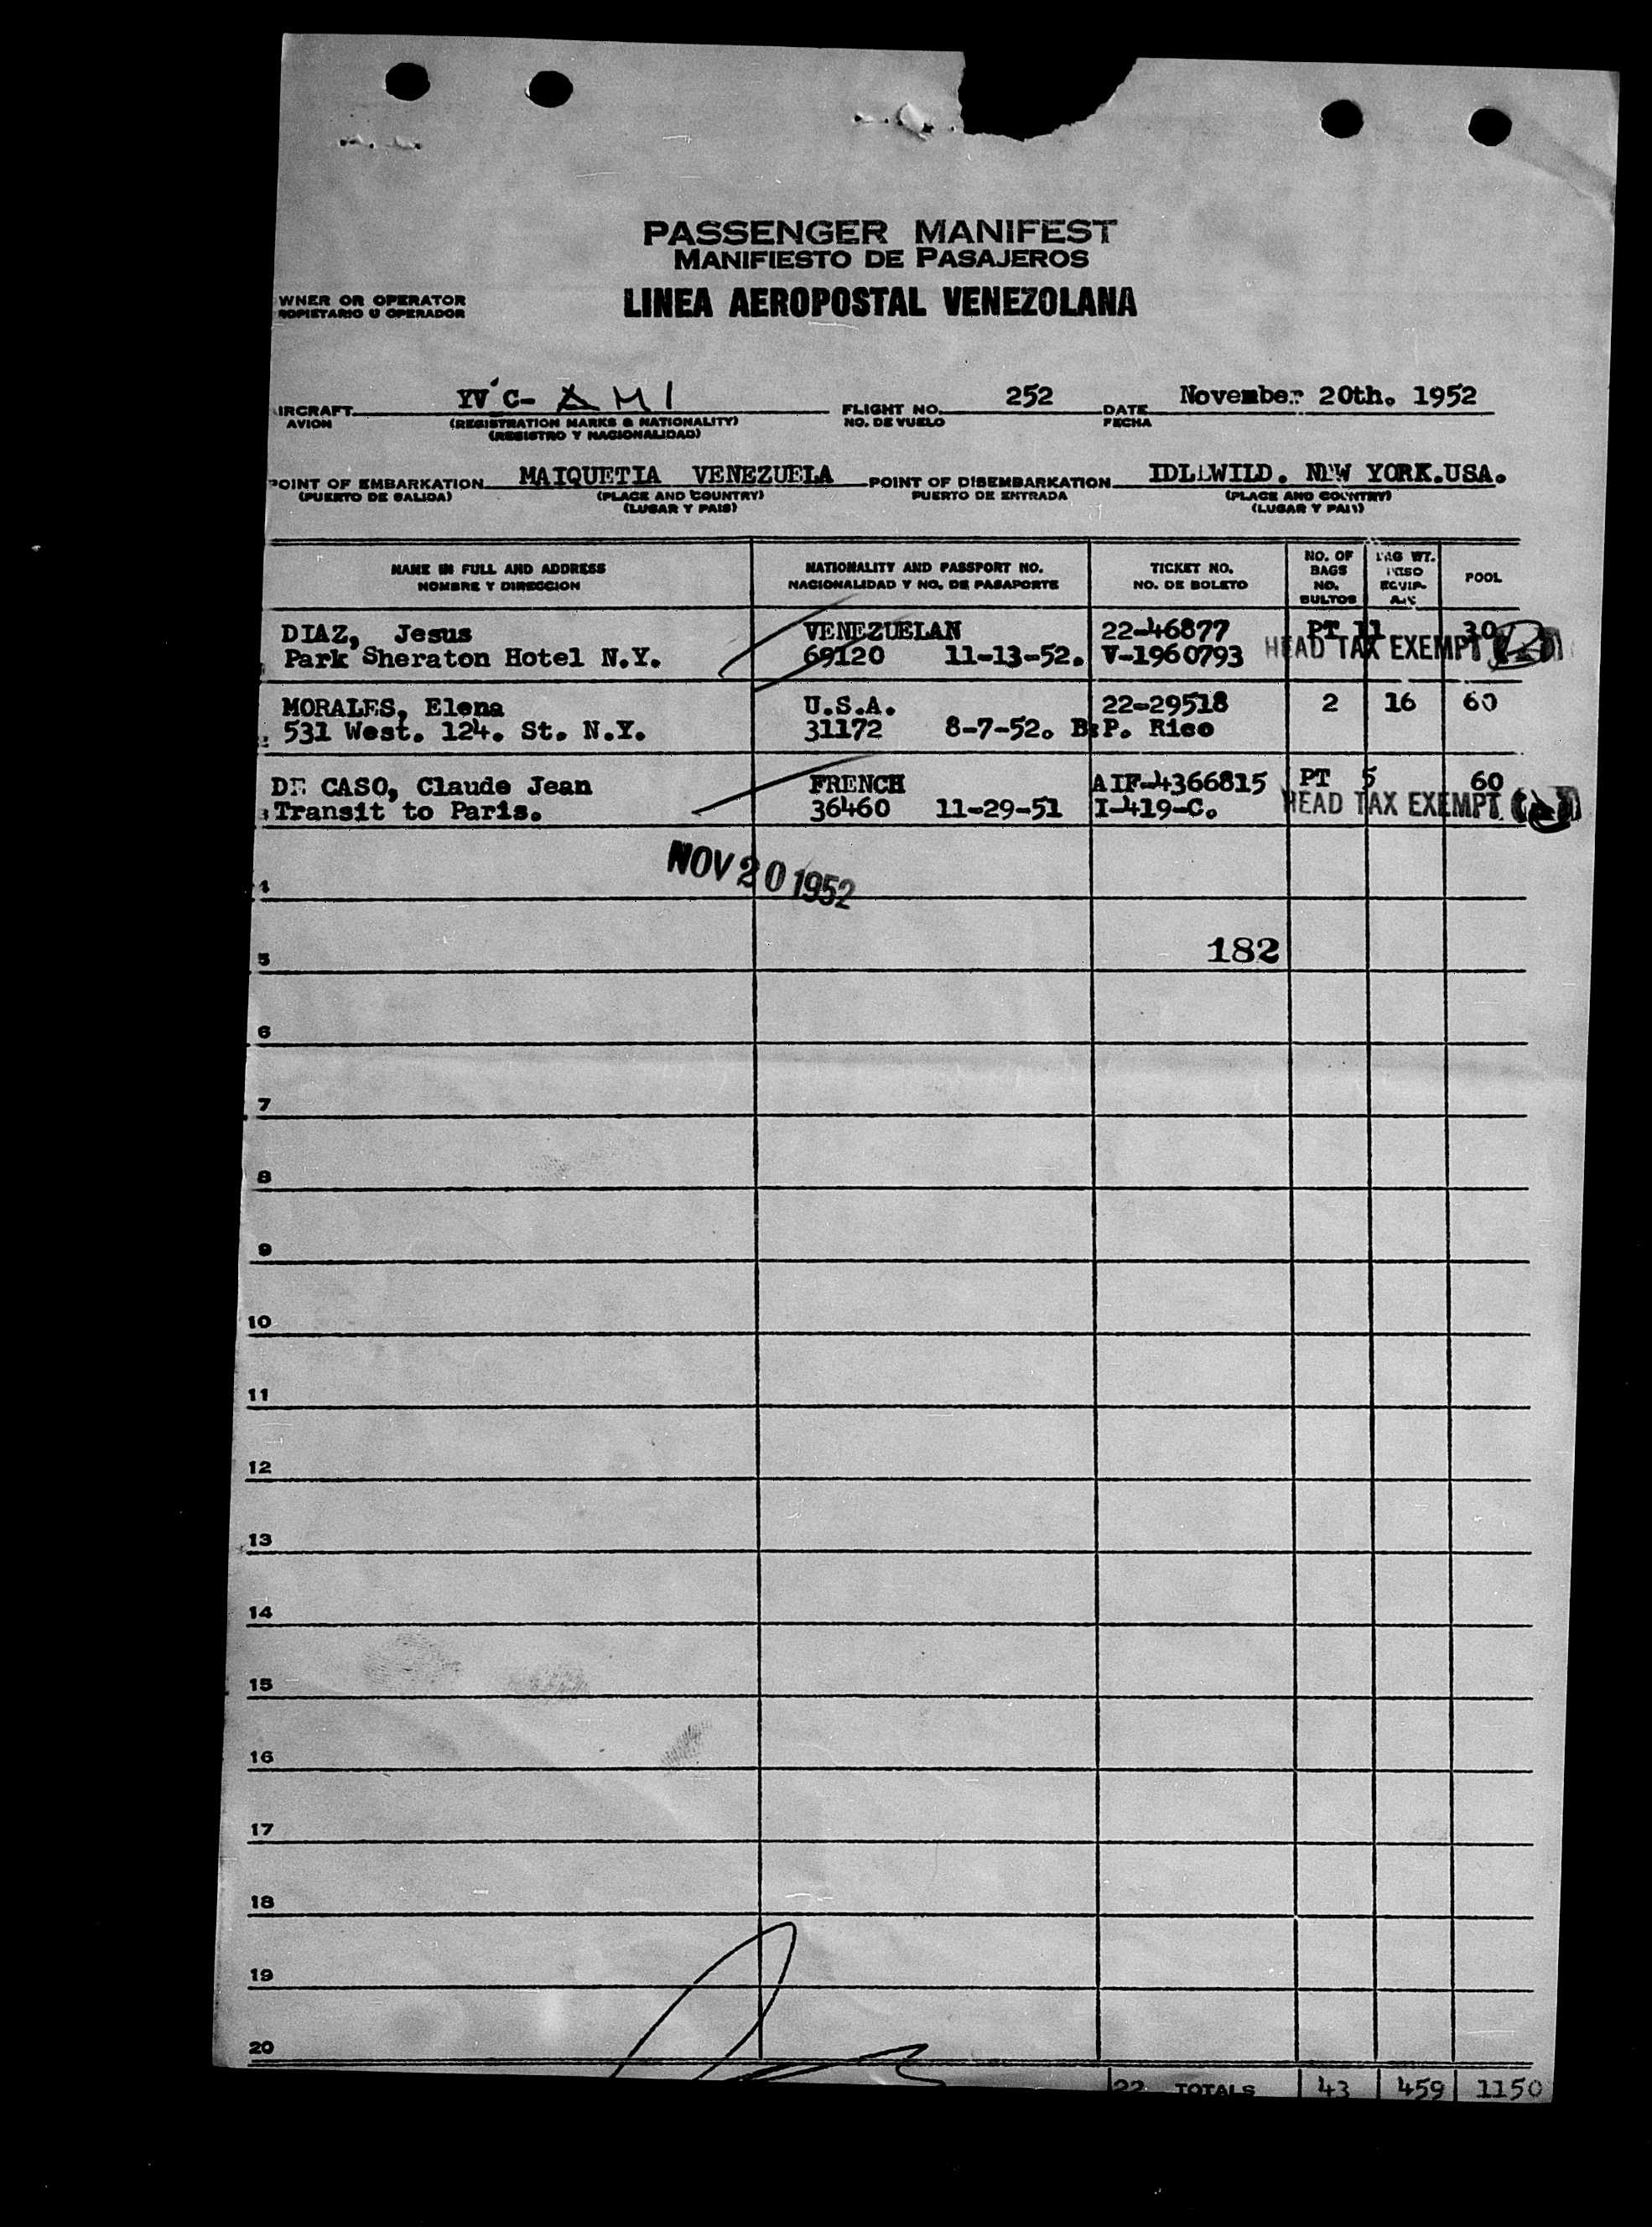 PASSENGER MANIFEST
MANIFIESTO DE PASAJEROS
WNER OR OPERATOR
ROPIETARIO U OPERADOR
LINEA AEROPOSTAL VENEZOLANA
IRCRAFT YV C- AMI FLIGHT NO. 252 DATE November 20th. 1952
AVION (REGISTRATION MARKS & NATIONALITY) NO. DE VUELO FECHA
(REGISTRO Y NACIONALIDAD)
POINT OF EMBARKATION MAIQUETIA VENEZUELA POINT OF DISEMBARKATION IDLEWILD. NEW YORK.USA.
(PUERTO DE SALIDA) (PLACE AND COUNTRY) PUERTO DE ENTRADA (PLACE AND COUNTRY)
(LUGAR Y PAIS) (LUGAR Y PAIS)
NAME IN FULL AND ADDRESS
NOMBRE Y DIRECCION
NATIONALITY AND PASSPORT NO.
NACIONALIDAD Y NO. DE PASAPORTE
TICKET NO.
NO. DE BOLETO
NO. OF
BAGS
NO.
BULTOS
BAG WT.
PESO
EQUIP-
AJE
POOL
DIAZ, Jesus VENEZUELAN 22-46877 PT 11 30
Park Sheraton Hotel N.Y. 69120 11-13-52. V-1960793 HEAD TAX EXEMPT
MORALES, Elena U.S.A. 22-29518 2 16 60
2 531 West. 124. St. N.Y. 31172 8-7-52. B:P. Rico
DE CASO, Claude Jean FRENCH AIF-4366815 PT 5 60
3 Transit to Paris. 36460 11-29-51 I-419-C. HEAD TAX EXEMPT
NOV 20 1952
4
182
5
6
7
8
9
10
11
12
13
14
15
16
17
18
19
20
22 TOTALS 43 459 1150